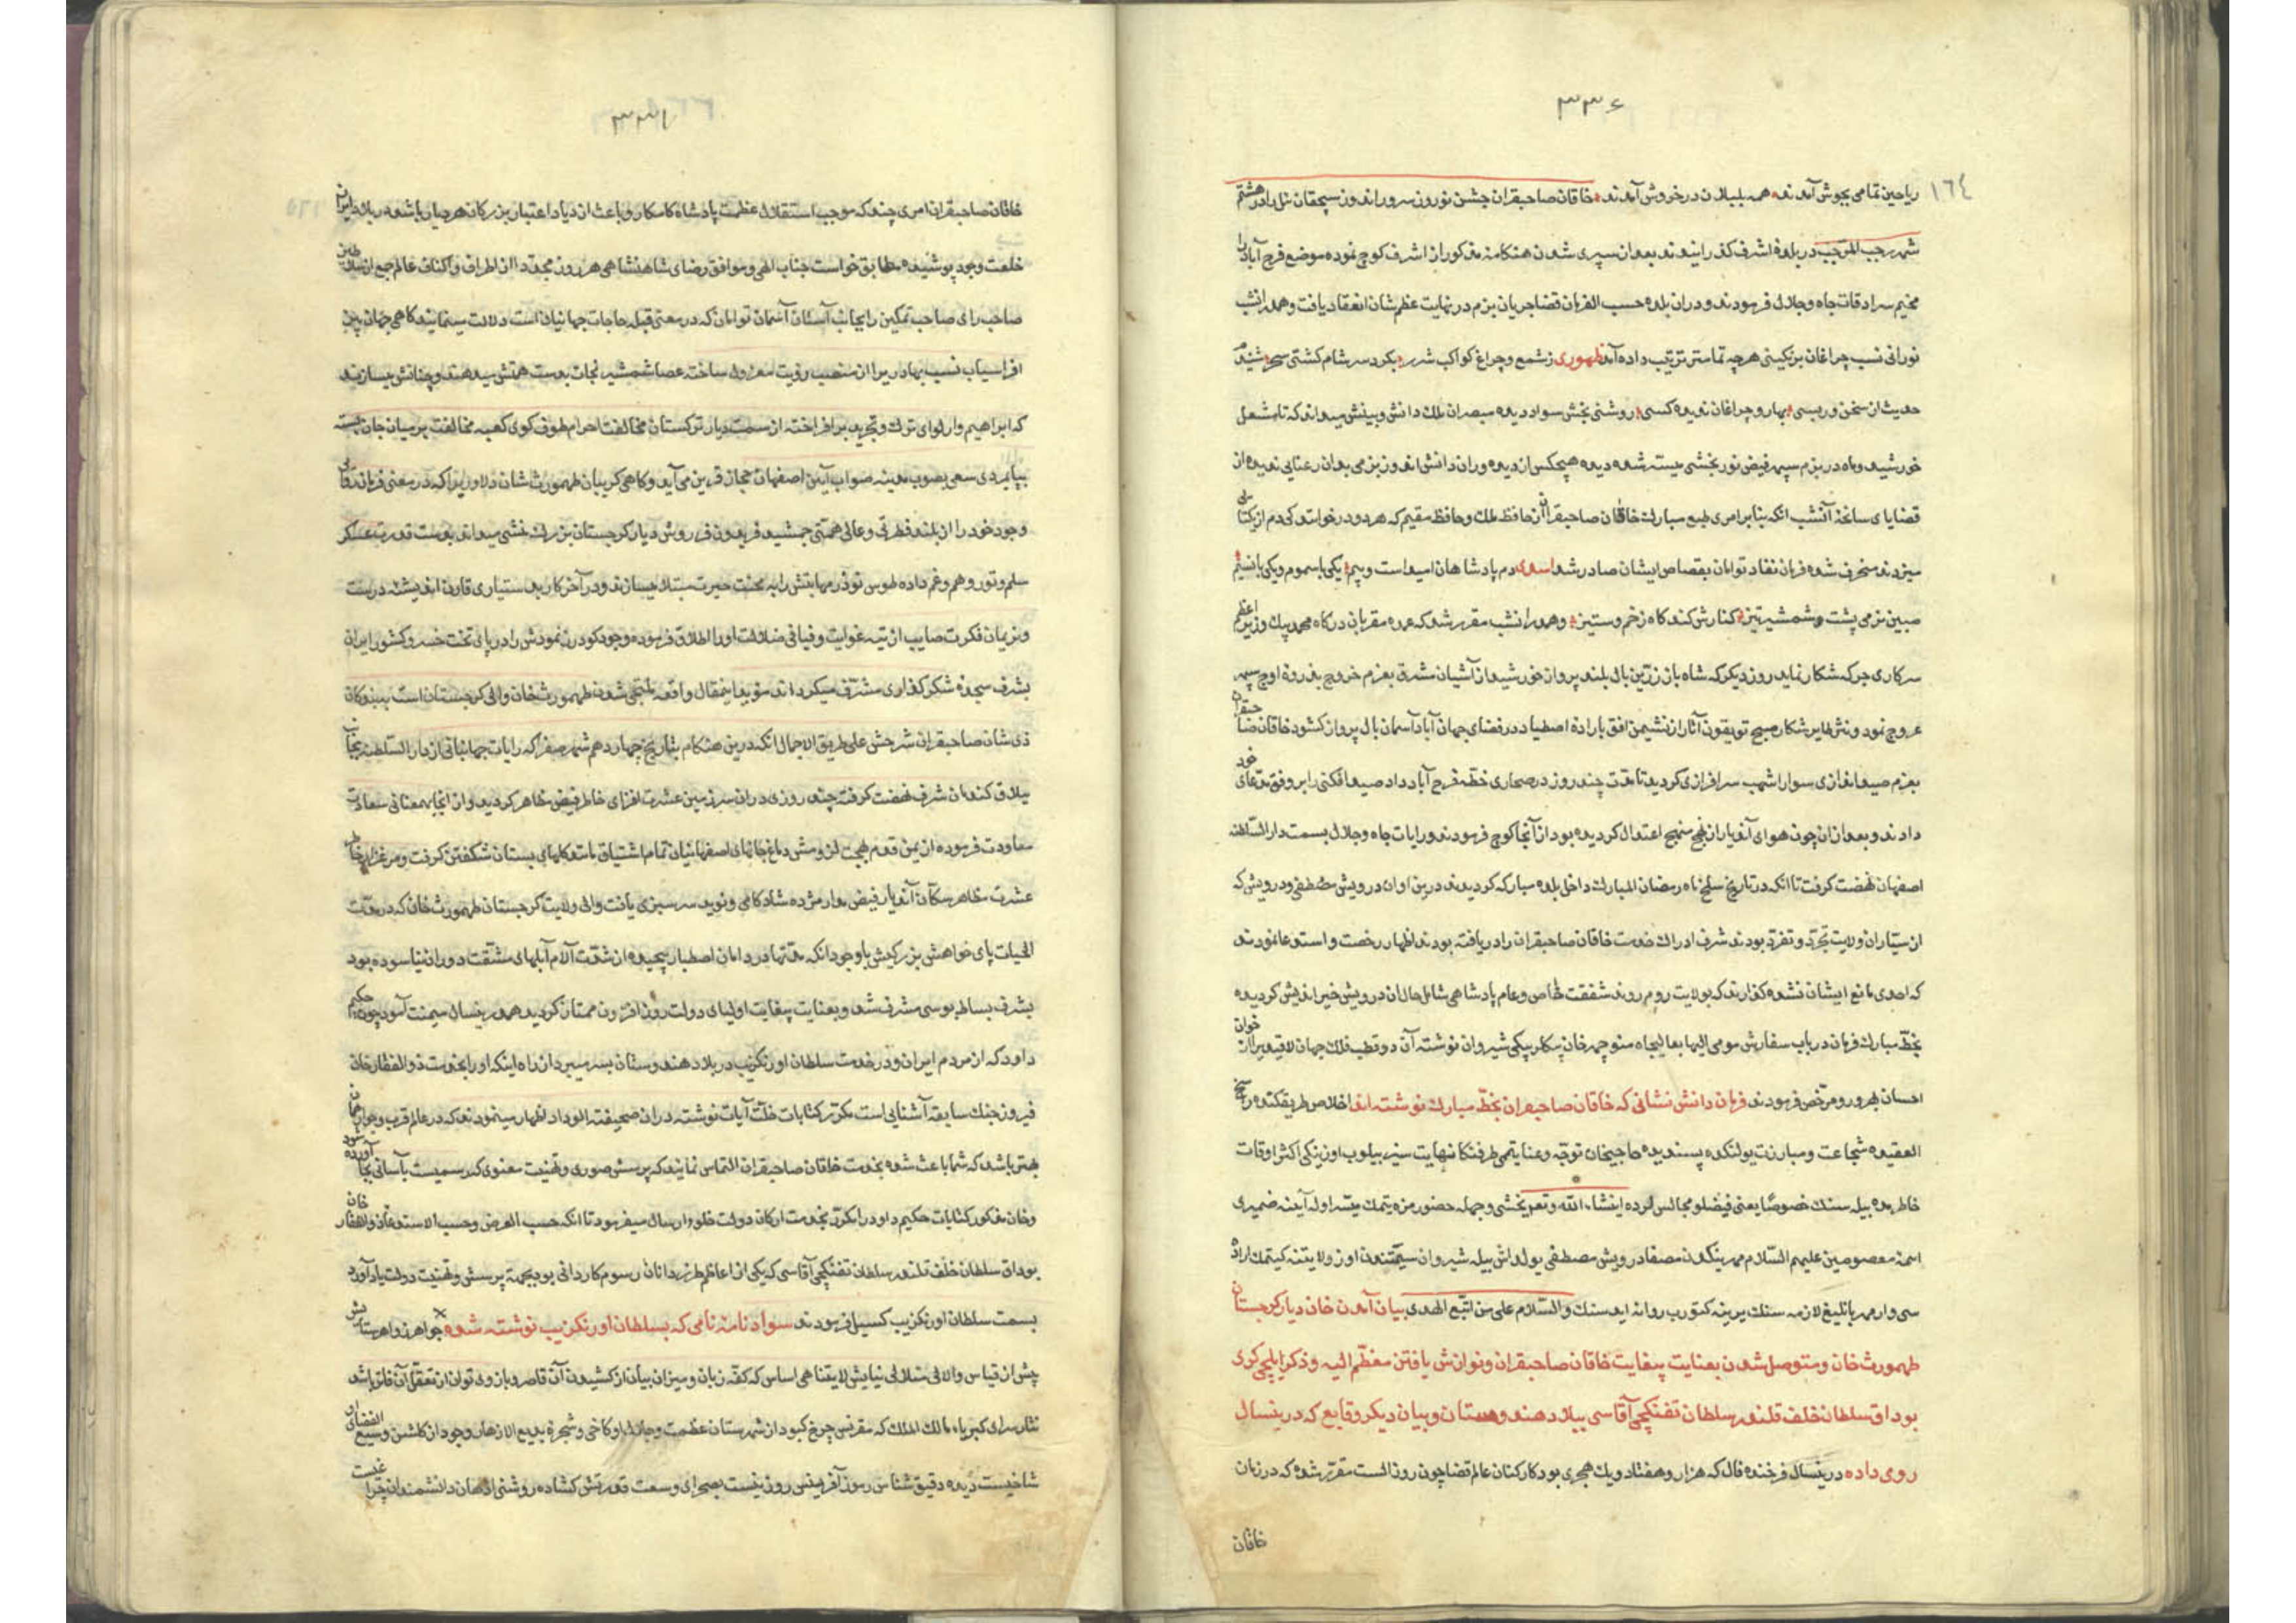 ۳۳۶
١٦٤
ریاحین تمامی بجوش آمدند همه بلبلان در خروش آمدند خاقان صاحبقران جشن نوروز سرور اندوز سیچقان ئیل را در هشتم
شهر رجب المرجب در بلدهٔ اشرف گذرانیدند بعد از سپری شدن هنگامه مذکور از اشرف کوچ نموده موضع فرح آباد را
مخیم سرادقات جاه و جلال فرمودند و در ان بلده حسب الفرمان قضا جریان بزم در نهایت عظم شان انعقاد یافت و همدرانشب
نورانی نسب چراغان بزنگینی هر چه تمامتر ترتیب داده آمد ظهوری ز شمع و چراغ کواکب شرر بکرد سر شام کشتی سحر شنیدم
حدیث از سخن ورسی بهار و چراغان ندیده کسی روشنی بخش سواد دیده مبصران ملک دانش و بینش میداند که تا مشعل
خورشید و ماه در بزم سپهر فیض نور بخشی بسته شده دیده هیچکس از دیده وران دانش اندوز بزمی بدان رعنایی ندیده از
قضایای سانحهٔ آنشب انکه بنابر امری طبع مبارک خاقان صاحبقران از حافظ ملک و حافظ مقیم که هر دو در خوانندکی دم از یکتایی
میزدند منحرف شده فرمان نفاد توامان بقصاص ایشان صادر شد اسدی دم پادشاهان امیداست و بیم یکی با سموم و یکی با نسیم
مبین نرمی پشت شمشیر تیز کنارش کند کاه زخم و ستیز و همدرانشب مقرر شد که عمده مقربان درکاه محمد بیک وزیر اعظم
سرکاری جرکه شکار نماید روز دیکر که شاه باز زرین بال بلند پرواز خورشید از آشیان مشرق بعزم خروج بذروهٔ اوج سپهر
عروج نمود و نثر طایر شکار صبح تویقون آثار از نشیمن افق بارادهٔ اصطیاد در فضای جهان آباد آسمان بال پرواز کشود خاقان صاحبقران
بعزم صید اندازی سوار اشهب سرافرازی کردید تا مدت چند روز در صحاری خطهٔ فرح آباد داد صید افکنی را بر وفق مدعای خود
دادند و بعد از ان چون هوای آندیار از نهج منهج اعتدال کردیده بود از آنجا کوچ فرمودند و رایات جاه و جلال بسمت دار السلطنه
اصفهان نهضت کرفت تا انکه در تاریخ سلخ ماه رمضان المبارک داخل بلده مبارکه کردیدند درین اوان درویش مصطفی و درویش که
از سیاران ولایت تجرد و تفرد بودند شرف ادراک خدمت خاقان صاحبقران را دریافته بودند اظهار رخصت و استدعا نمودند
که احدی مانع ایشان نشده کذارند که بولایت روم روند شفقت خاص و عام پادشاهی شامل حال ان درویش خیر اندیش کردیده
بخط مبارک فرمان در باب سفارش مومی الیها بعالیجاه منوچهر خان بیکلربیکی شیروان نوشته آن دو قطب فلک جهان لاقیدیرا از خوان
احسان بهره ور و مرخص فرمودند فرمان دانش نشانی که خاقان صاحبقران بخط مبارک نوشته اند اخلاص طریقکده راسخ
العقیده شجاعت و مبارزت یولنکده پسندیده حاجیخان توجه و عنایتمی طرفنکا نهایت سیز بیلوب اوزینکی اکثر اوقات
خاطرمده بیله سنک خصوصًا یعنی فیضلو مجالس لرده انشاء الله وتعر بخشی وجهله حضورمزه یتمک میسر اوله آینهٔ ضمیری
ائمهٔ معصومین علیهم السلام مهرینکدن مصفا درویش مصطفی یولداش بیله شیروان سمتندن اوز ولایتنه کیتمک ارادهٔ
سی وار مهر بالیغ لازمه سنک یرینه کتورب روانه ایده سنک والسلام علی من اتبع الهدی بیان آمدن خان دیار کرجستان
طهمورث خان و متوصل شدن بعنایت بیغایت خاقان صاحبقران و نوازش یافتن معظم الیه و ذکر ایلچی کری
بوداق سلطان خلف قلندر سلطان تفنکچی آقاسی ببلاد هند وستان و بیان دیکر وقایع که درینسال
روی داده درینسال فرخنده فال که هزار و هفتاد و یک هجری بود کارکنان عالم قضا چون روز الست مقرر شده که در زمان
خاقان
خاقان صاحبقران امری چند که موجب استقلال عظمت پادشاه کامکار و باعث ازدیاد اعتبار بزرکان هر دیار باشد در بلاد ایران
خلعت وجود پوشیده مطابق خواست جناب الهی و موافق رضای شاهنشاهی هر روز مجددا از اطراف و اکناف عالم جمع از سلاطین
صاحب رای صاحب تمکین را بجانب آستان آسمان توامان که در معنی قبله حاجات جهانیان است دلالت مینمایند کاهی جهان بین
افراسیاب نسب بهادر میرزا از منصب رؤیت معزول ساخته عصا شمشیر نجات بدست همتش میدهند و چنانش میسازند
که ابراهیم وار لوای ترک و تجرید برافراخته از سمت دیار ترکستان مخالفت احرام طوف کوی کعبه مخالفت بر میان جان بسته
بپایمردی سعی بصوب مدینه صواب آیین اصفهان حجاز قرین می آید و کاهی کریبان طهمورث شان دلاوریرا که در معنی فرمان
وجود خود را از بلند فطرتی و عالی همتی جمشید فریدون فر روش دیار کرجستان بزرک منشی میداند بدست قدرت عسکر
سلم و تور و هم و غم داده طوس نوذر مهابتش را به محنت حیرت مبتلا میسازند و در آخر کار بدستیاری قارن اندیشه درست
و نریمان فکرت صایب از تیه غوایت و فیافی ضلالت اورا اطلاق فرموده وجود کودرز نمودش را در پای تخت خسرو کشور ایران
بشرف سجده شکرکذاری مشرف میکرداند مؤید اینمقال واقعه ملتجی شدن طهمورث خان والی کرجستان است ببندکان
ذی شان صاحبقران شرحش علی طریق الاجمال انکه درین هنکام بتاریخ چهاردهم شهر صفر که رایات جهانبانی از دار السلطنه بجانب
ییلاق کندمان شرف نهضت کرفت چند روزی در ان سرزمین عشرت افزای خاطر فیض مظاهر کردید و از انجا بهمعنانی سعادت
معاودت فرموده از یمن قدم بهجت لزومش دماغ جانهای اصفهانیان تمام اشتیاق مانند کلهای بستان شکفتن کرفت و مرغزار خاطر
عشرت مظاهر سکان آندیار فیض مدار مژده شادکامی و نوید سرسبزی یافت والی ولایت کرجستان طهمورث خان که در مدت
الحیات پای خواهش بزرکیش با وجود انکه مدتها در دامان اصطبار پیچیده از شدت آلام آبلهای مشقت دوران نیاسوده بود
بشرف بساط بوسی مشرف شد و بعنایت بیغایت اولیای دولت روز افزون ممتاز کردید همدرینسال میمنت آمود چون حکیم
داود که از مردم ایران و در خدمت سلطان اورنکزیب در بلاد هندوستان بسر میبرد از راه اینکه اورا بخدمت ذوالفقار خان
فیروز جنک سابقه آشنایی است مکرر کتابات خلت آیات نوشته در ان صحیفة الوداد اظهار مینمودند که در عالم قرب و جوار همان
بهتر باشد که شما باعث شده بخدمت خاقان صاحبقران التماس نمایند که پرسش صوری و تهنیت معنوی که رسمیست بآسانی بجا آورده شود
و خان مذکور کتابات حکیم داود را مکرر بخدمت ارکان دولت خلود ارسال میفرمود تا انکه حسب العرض و حسب الاستدعای ذوالفقار خان
بوداق سلطان خلف قلندر سلطان تفنکچی آقاسی که یکی از اعاظم طرز دانان رسوم کاردانی بود بجهة پرسش و تهنیت دولت یاد آورد
بسمت سلطان اورنکزیب کسیل فرمودند سواد نامهٔ نامی که بسلطان اورنکزیب نوشته شده جواهر زواهر ستایش
بیش از قیاس و لالی متلالی نیایش لایتناهی اساس که کفه زبان و میزان بیان از کشیدن آن قاصر و بازوی توان از تعقل آن فاتر باشد
نثار سرای کبریاء مالک الملک که مقرنس چرخ کبود از شهرستان عظمت و جلال او کاخی و شجره بدیع الازهار وجود از کلشن وسیع الفضای او
شاخیست دیده دقیقه شناس رموز آفرینش روزنیست بصحرای وسعت قدرتش کشاده روشنی اذهان دانشمندان چراغیست